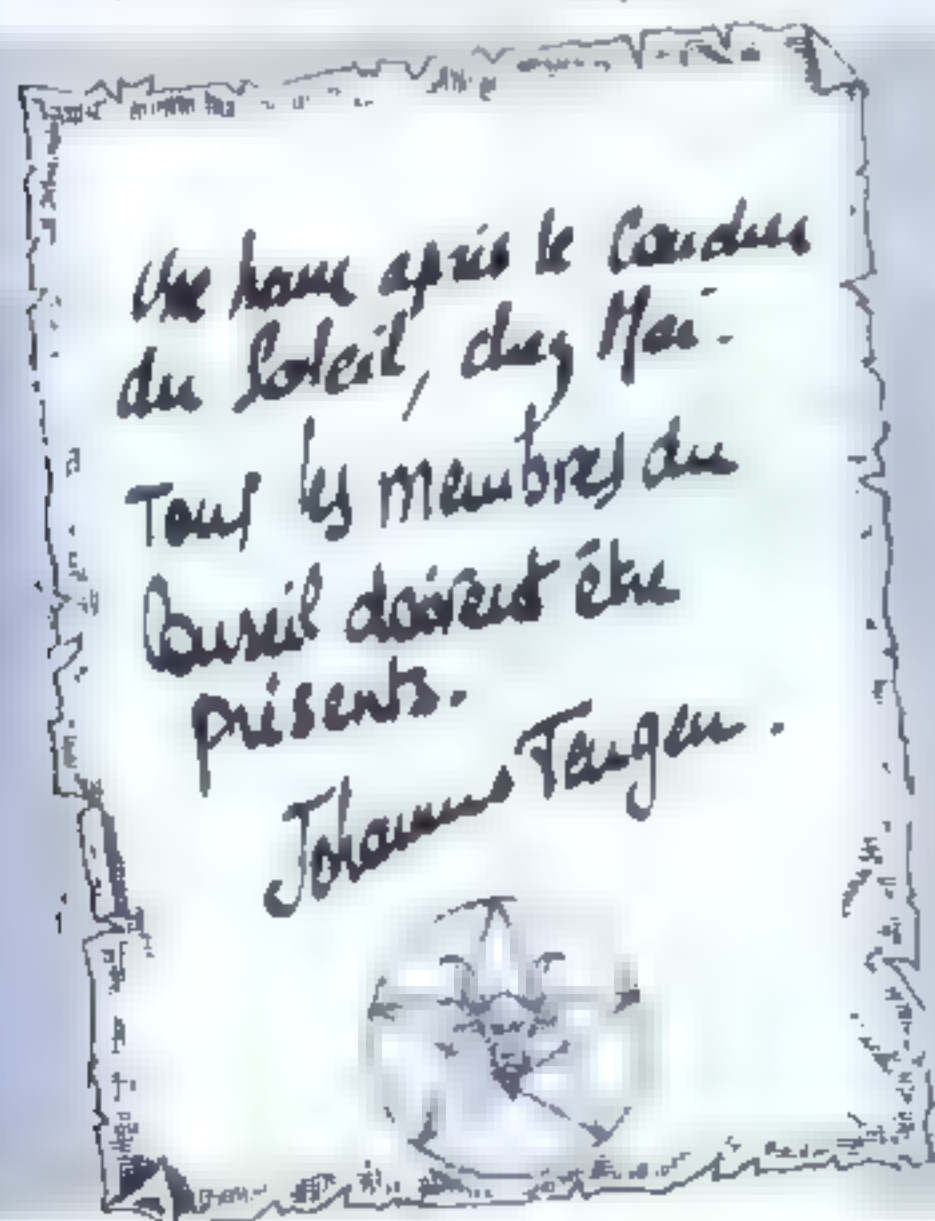 Une heure après le Coucher
du Soleil, chez Moi.
Tous les membres du
Conseil doivent être
présents.
Johannes Tengen.